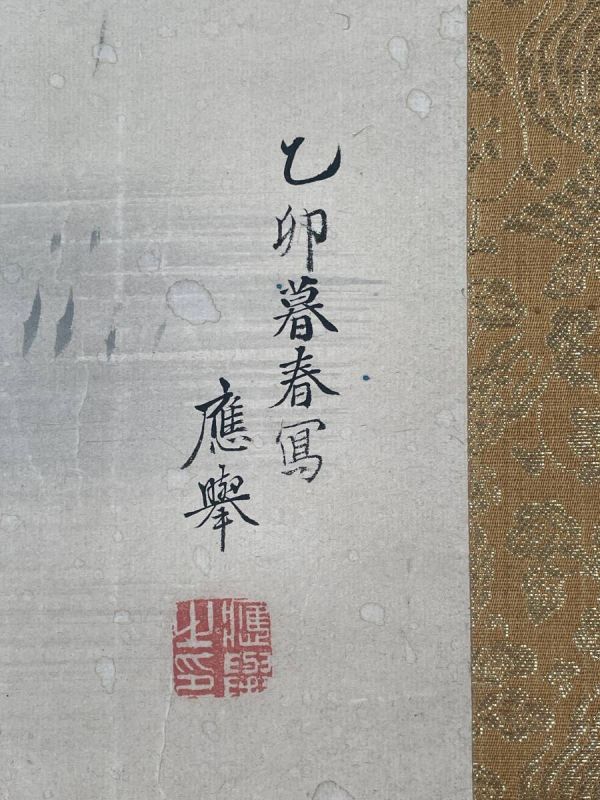 乙卯暮春寫
應擧
應擧之印